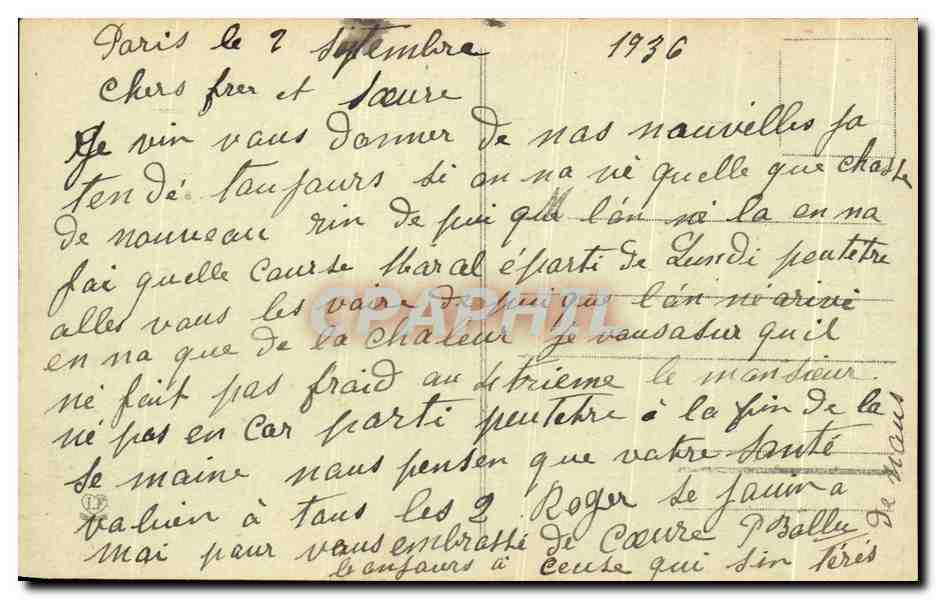 Paris le 2 septembre 1936
Chers frer et Soeure
Je vin vous donner de nos nouvelles ja
tendé toujours si on na né quelle que chosse
de nouveau rin de pui que l'on né la on na
fai quelle course Maral éparti de Lundi peutetre
alles vous les voire de pui que l'on né arivé
en na que de la chaleur je vousasur qu'il
né fait pas froid au setrieme le monsieur
né pas en cor parti peutetre à la fin de la
semaine nous pensen que votre santé
vabien à tous les 2 Roger se jouin a
moi pour vous embrassé de Coeure P Ballu
bonjours à ceuse qui sin térés
de nous
CPAPHIL